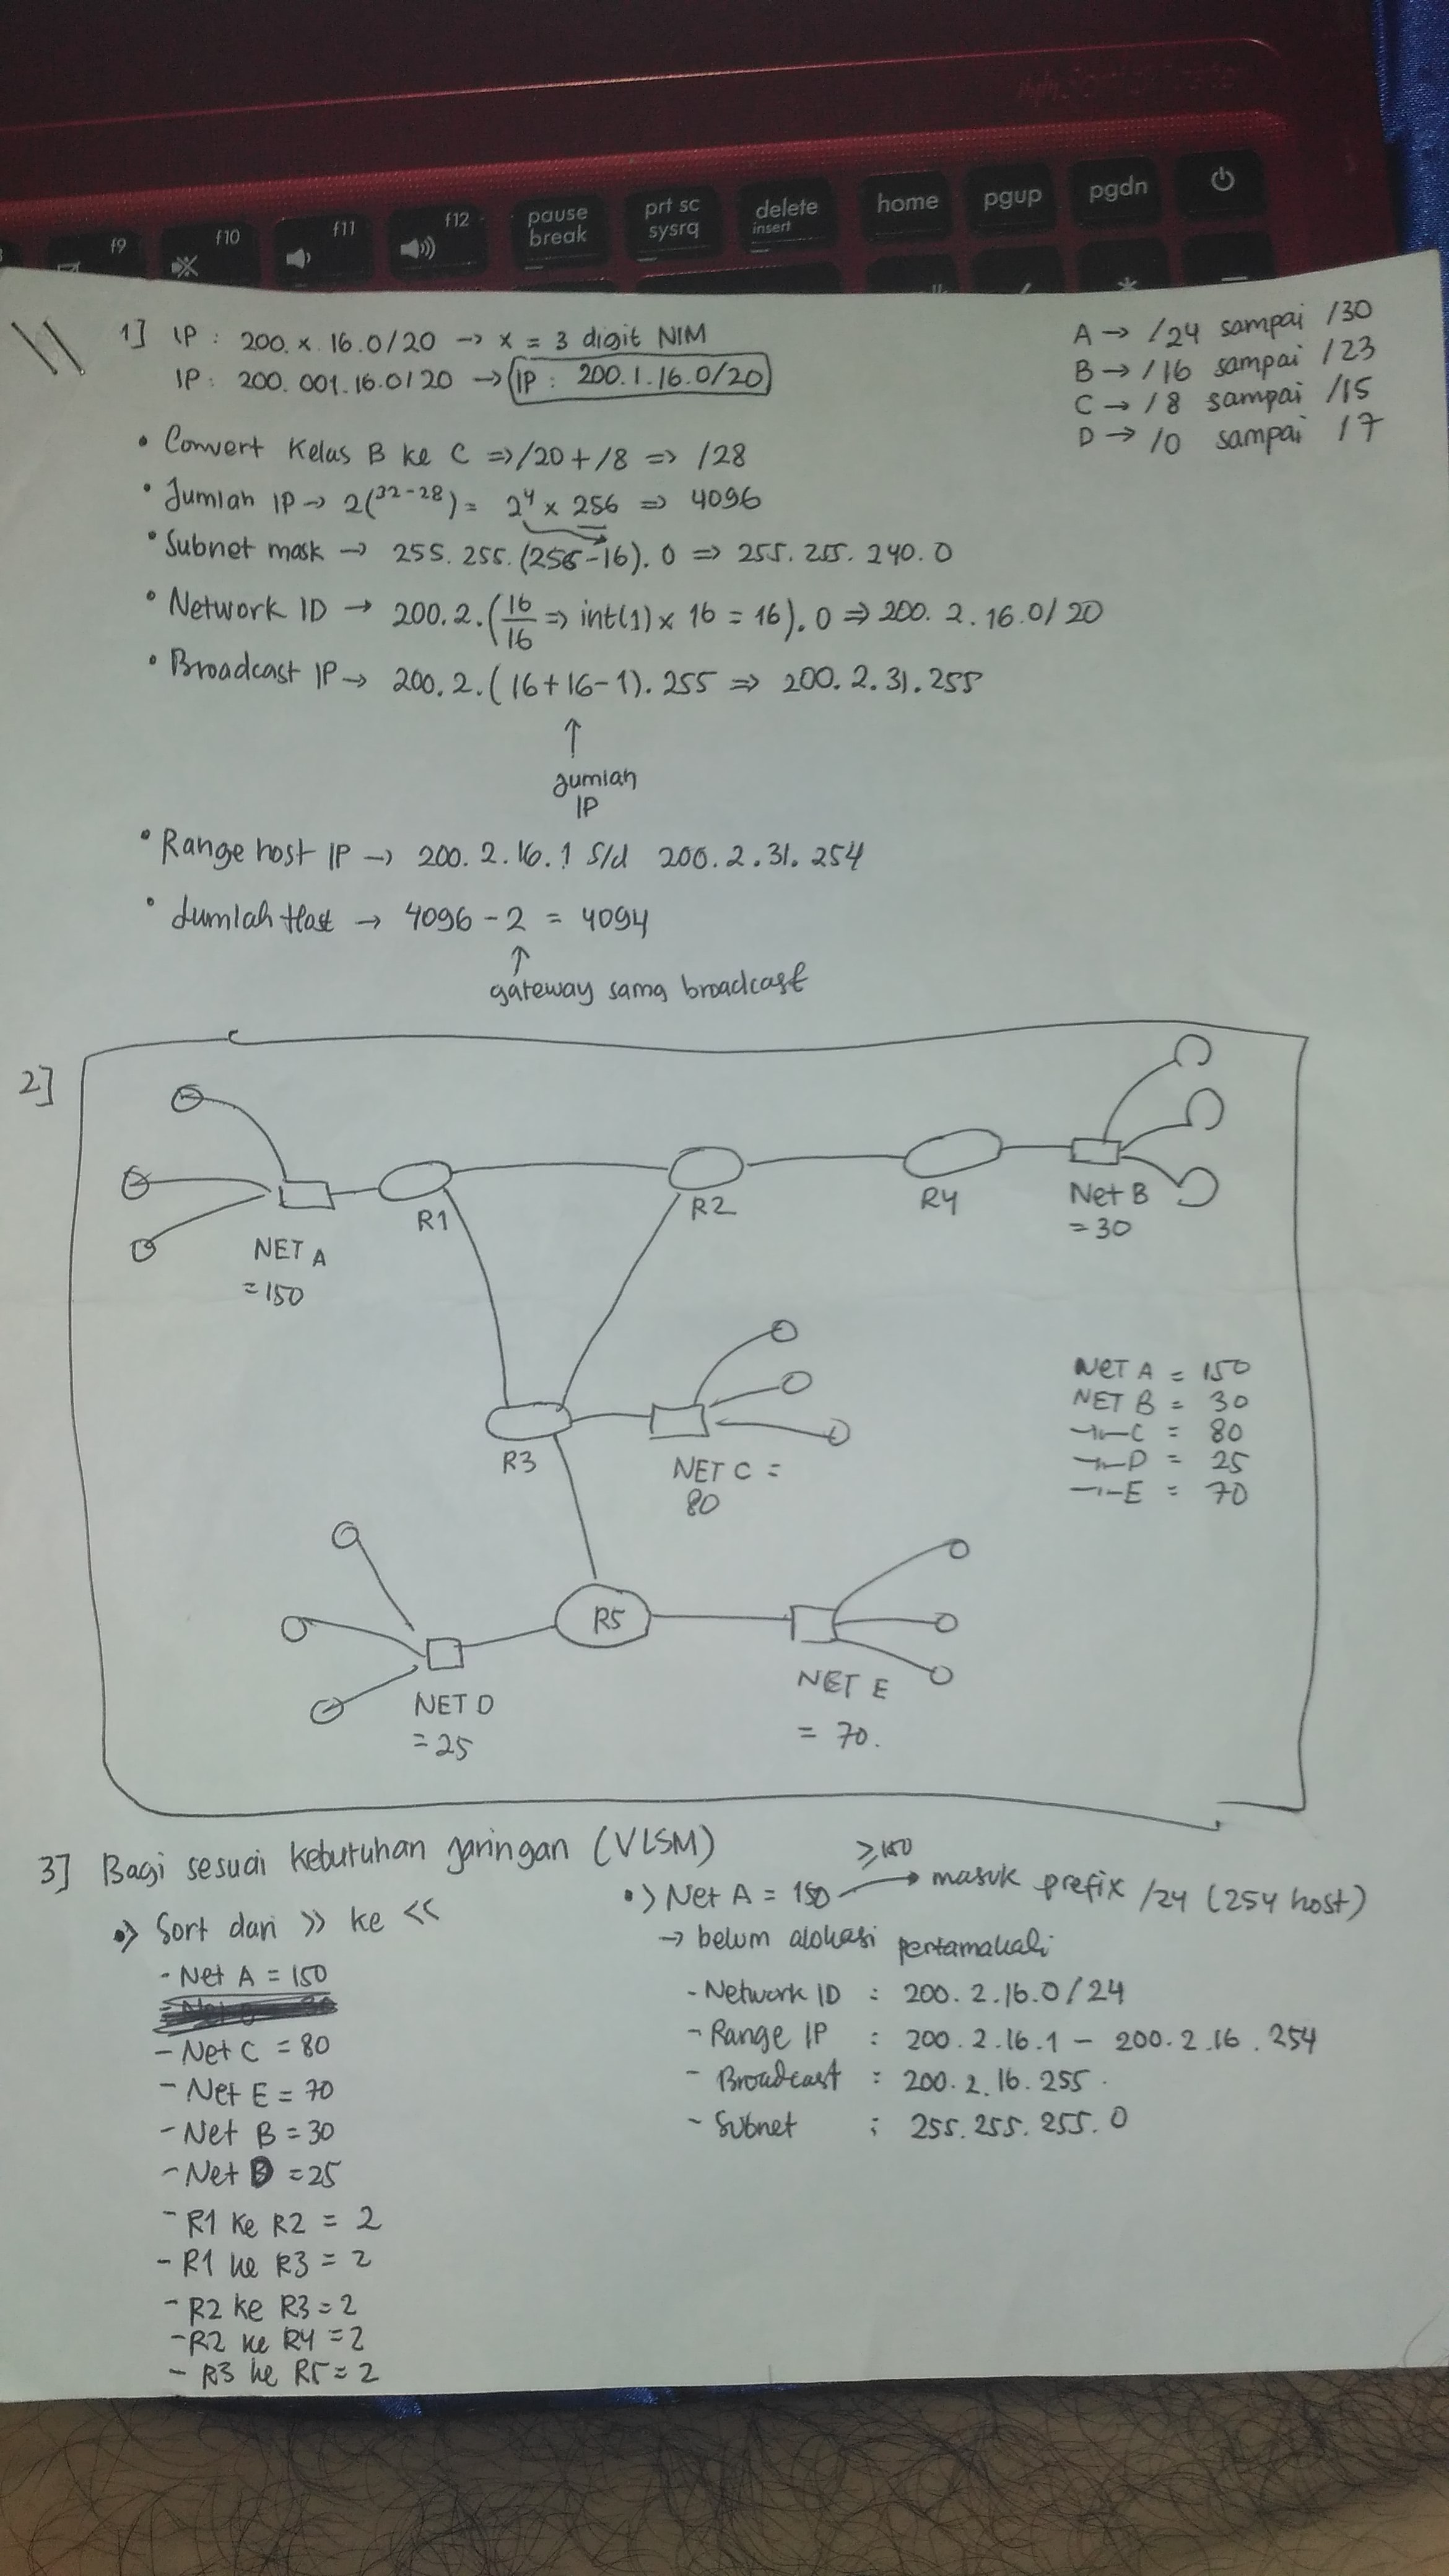 f9
f10
f11
f12
pause
break
prt sc
sysrq
delete
insert
home
pgup
pgdn
1] IP : 200. x. 16.0/20 → x = 3 digit NIM
IP : 200. 001. 16.0/20 → IP : 200.1.16.0/20
A → /24 sampai /30
B → /16 sampai /23
C → /8 sampai /15
D → /0 sampai /7
• Convert Kelas B ke C ⇒ /20 + /8 ⇒ /28
• Jumlah IP → 2(³²⁻²⁸) = 2⁴ x 256 ⇒ 4096
• Subnet mask → 255. 255. (256-16). 0 ⇒ 255. 255. 240. 0
• Network ID → 200.2.(16/16 ⇒ int(1) x 16 = 16). 0 ⇒ 200. 2. 16.0/20
• Broadcast IP → 200. 2. ( 16+16-1). 255 ⇒ 200. 2. 31. 255
↑
Jumlah
IP
• Range host IP → 200. 2. 16. 1 s/d 200. 2. 31. 254
• Jumlah Host → 4096 - 2 = 4094
↑
gateway sama broadcast
2]
R1
R2
R4
Net B
= 30
NET A
= 150
R3
NET C =
80
NET A = 150
NET B = 30
—〃— C = 80
—〃— D = 25
—〃— E = 70
R5
NET D
= 25
NET E
= 70.
3] Bagi sesuai kebutuhan jaringan (VLSM)
•> Sort dari >> ke <<
- Net A = 150
- Net C = 80
- Net E = 70
- Net B = 30
- Net D = 25
- R1 ke R2 = 2
- R1 ke R3 = 2
- R2 ke R3 = 2
- R2 ke R4 = 2
- R3 ke R5 = 2
≥150
•> Net A = 150 → masuk prefix /24 (254 host)
→ belum alokasi pertamakali
- Network ID : 200. 2. 16. 0/24
- Range IP : 200. 2. 16. 1 - 200. 2. 16. 254
- Broadcast : 200. 2. 16. 255
- Subnet : 255. 255. 255. 0